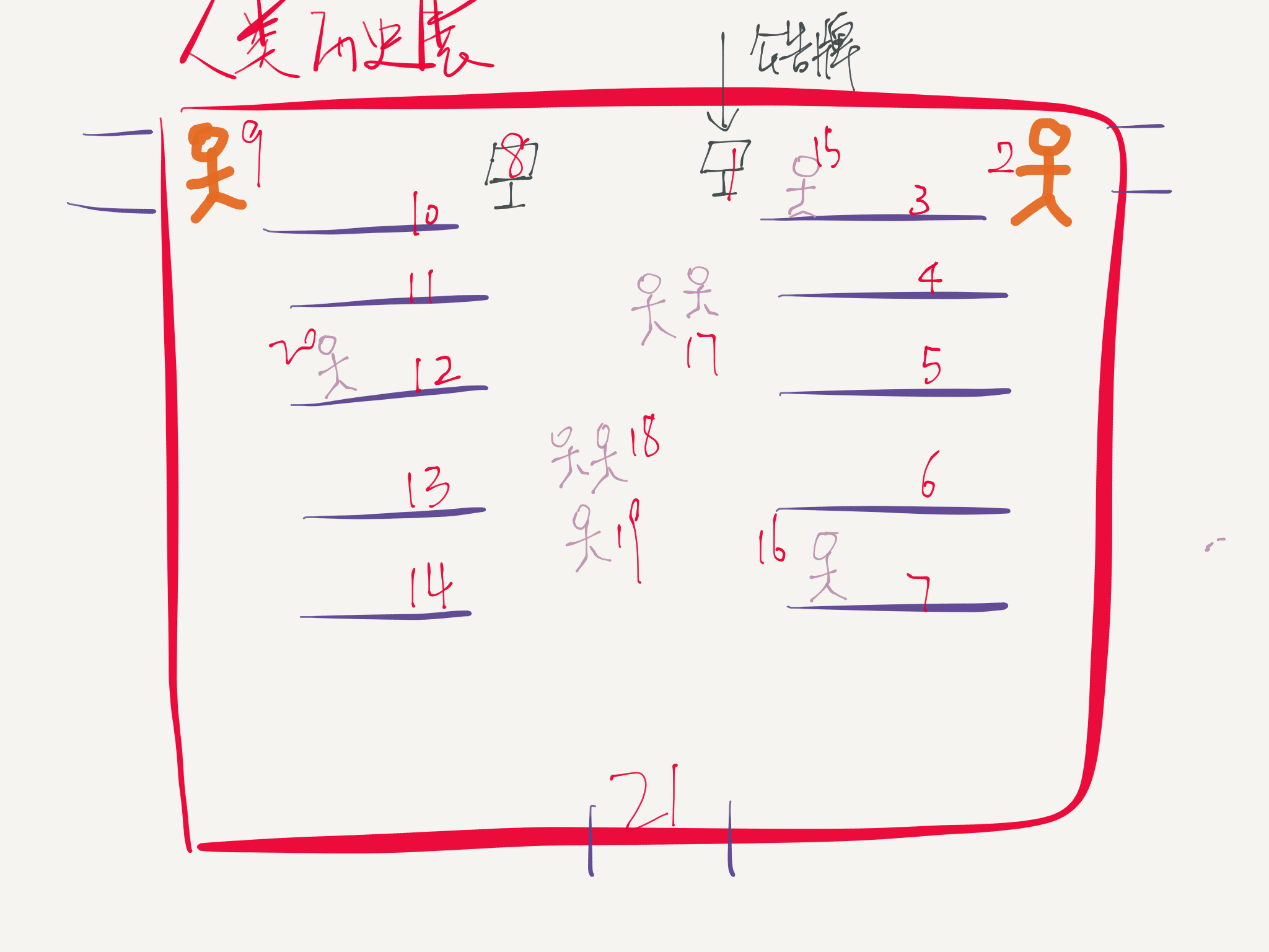 人类历史展
公告牌
9
8
1
15
2
10
3
11
4
17
20
12
5
18
13
6
19
16
14
7
21